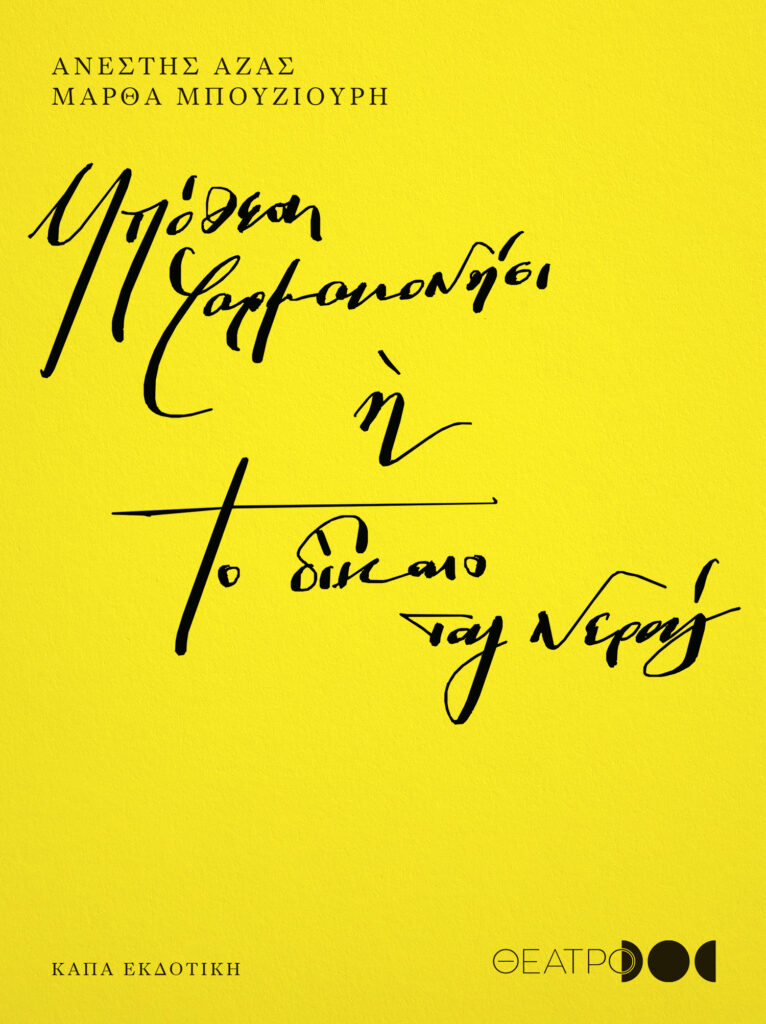 ΑΝΕΣΤΗΣ ΑΖΑΣ
ΜΑΡΘΑ ΜΠΟΥΖΙΟΥΡΗ
Υπόθεση
Φαρμακονήσι
ή
Το δίκαιο
του νερού
ΚΑΠΑ ΕΚΔΟΤΙΚΗ
ΘΕΑΤΡΟ DOC